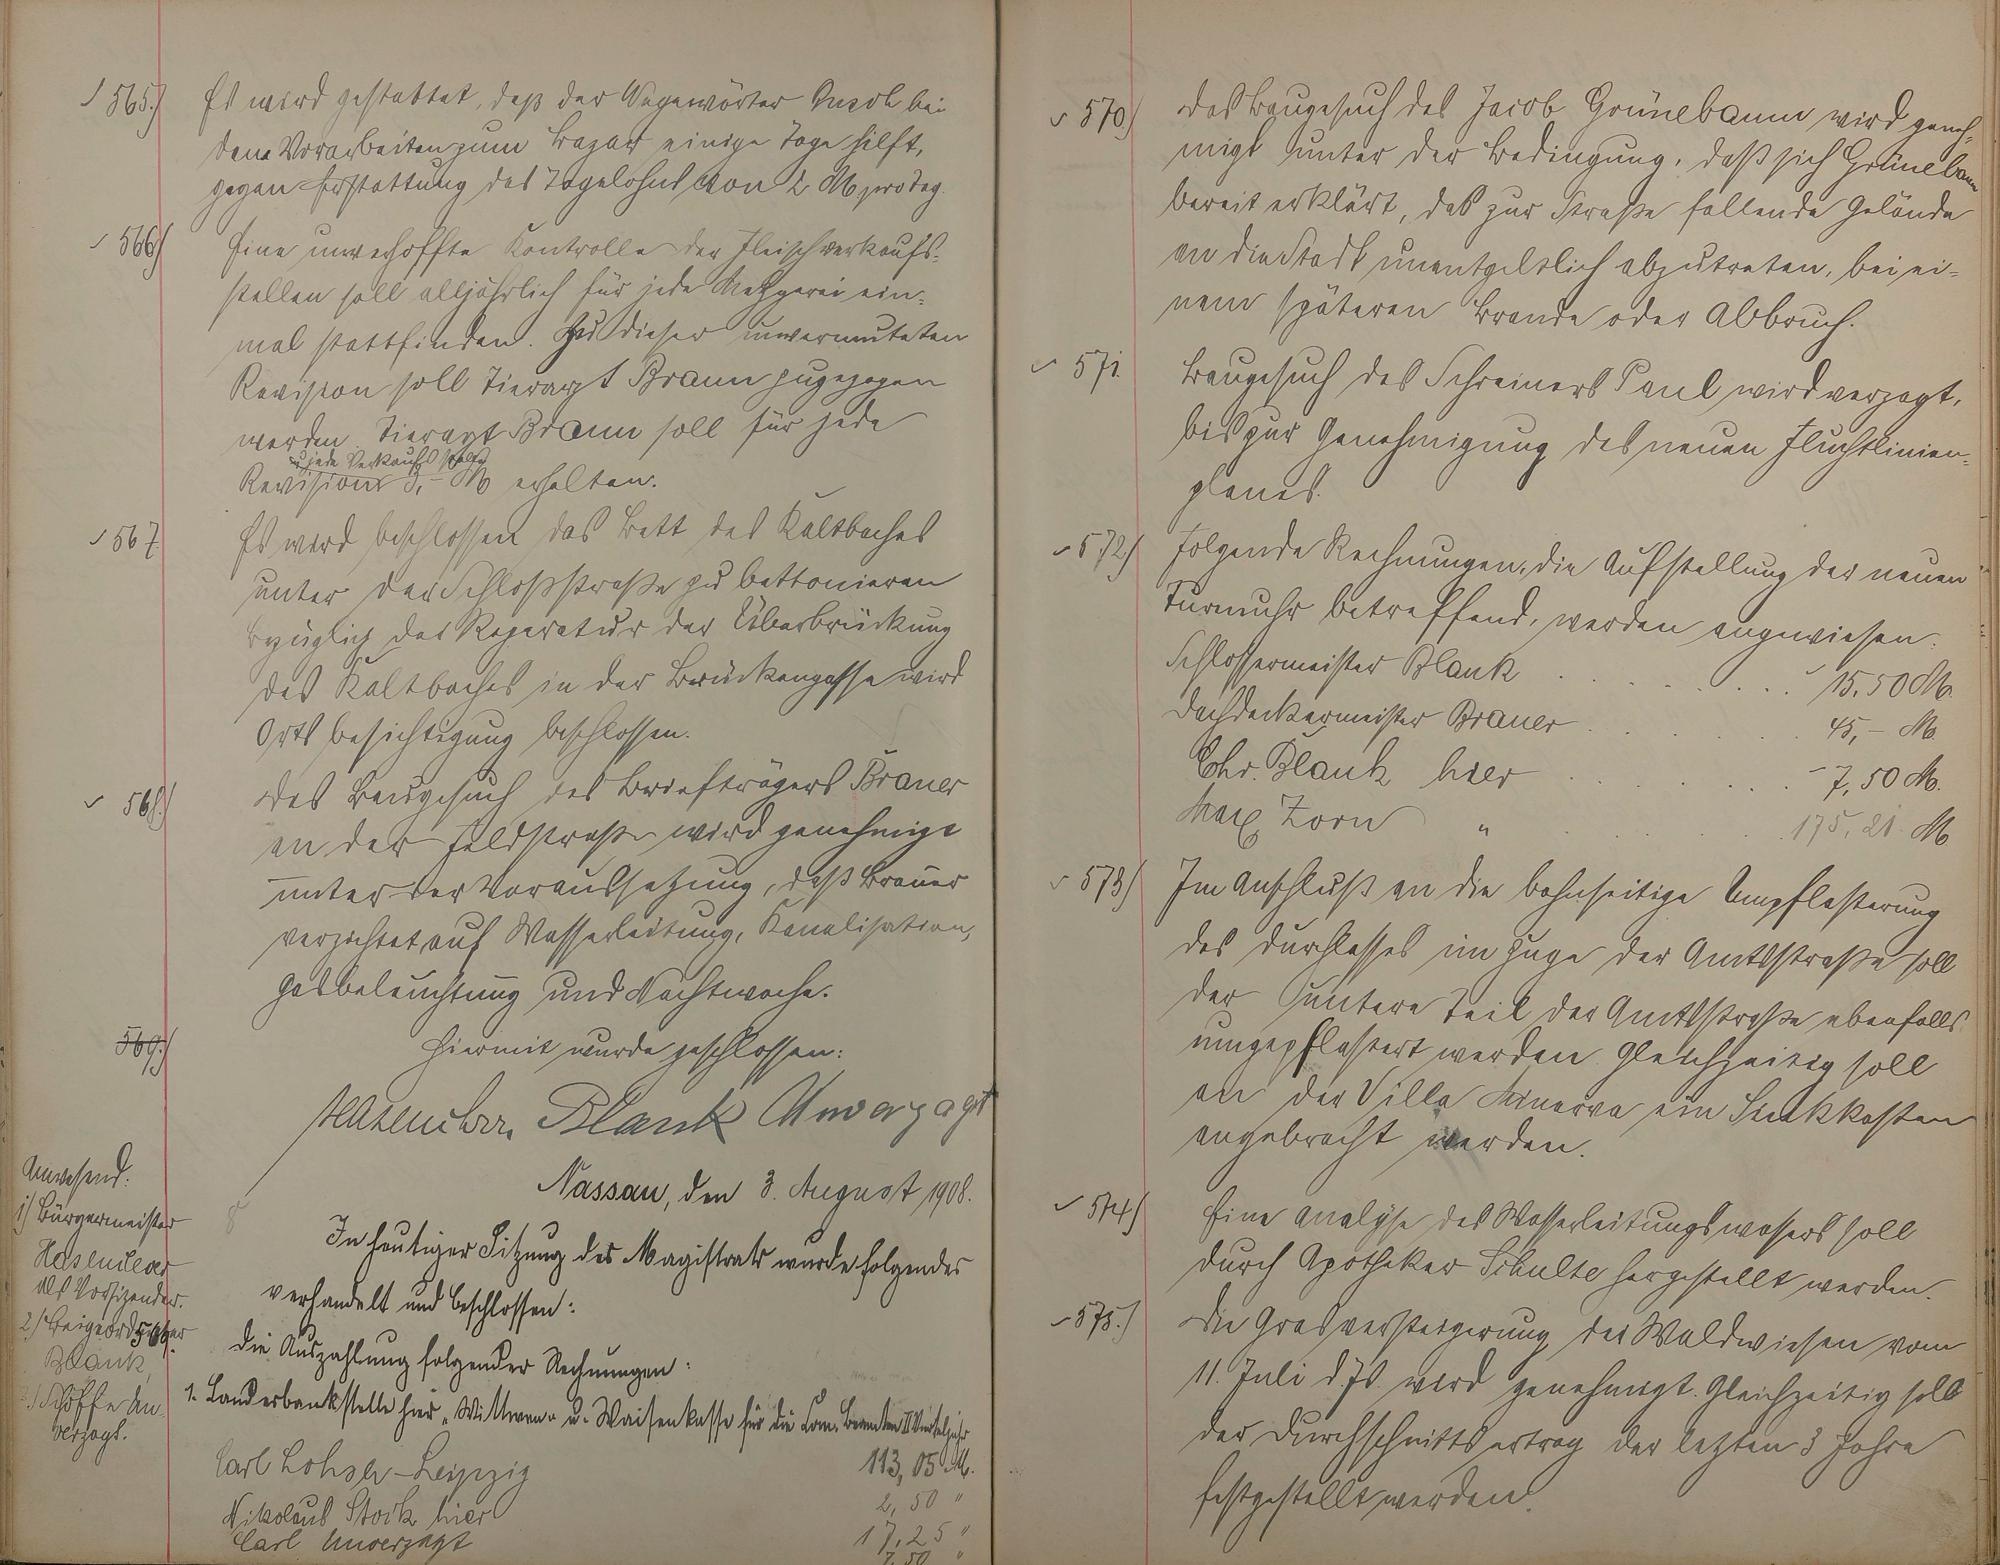 565.) Es wird gestattet, daß der Wegewärter bei
den Vorarbeiten zum Bazar einige Tage hilft,
gegen Erstattung des Tagelohns von 2 M pro Tag.
566) Eine unverhoffte Kontrolle der Fleischverkaufs-
stellen soll alljährlich für jede Metzgerei ein-
mal stattfinden. Zu dieser unvermuteten
Revision soll Tierarzt Braun zugezogen
werden. Tierarzt Braun soll für jede
u. jede Verkaufsstelle
Revision 3,- M erhalten.
567. Es wird beschlossen das Bett des Kaltbaches
unter der Schloßstraße zu bettonieren
bezüglich der Reparatur der Überbrückung
des Kaltbaches in der Brückengasse wird
Orts besichtigung beschlossen.
568.) Das Baugesuch des Briefträgers Brauer
an der Feldstraße wird genehmigt
unter der Voraussetzung, daß Brauer
verzichtet auf Wasserleitung, Kanalisation,
Gasbeleuchtung und Nachtwache.
569.) Hiermit wurde geschlossen:
Hasenclever. Blank Unverzagt
Anwesend:
1) Bürgermeister
Hasenclever
als Vorsizender.
2) Beigeordneter
Blank,
3.) Schöffe Un-
verzagt.
Nassau, den 3. August 1908.
In heutiger Sitzung des Magistrats wurde folgendes
verhandelt und beschlossen:
569. Die Auszahlung folgender Rechnungen:
1. Landesbankstelle hier "Wittwen- u. Waisenkasse für die Com. Beamten II Vierteljahr
113,05 M.
Carl Lohse - Leipzig 2,50 "
Nikolaus Stork hier 17,25 "
Carl Unverzagt 7,50 "
570) Das Baugesuch des Jacob Grünebaum wird geneh-
migt unter der Bedingung, daß sich Grünebaum
bereit erklärt, das zur Straße fallende Gelände
an die Stadt unentgeltlich abzutreten, bei ei-
nem späteren Brande oder Abbruch.
571. Baugesuch des Schreiners Paul wird verzagt,
bis zur Genehmigung des neuen Fluchtlinien-
planes.
572) Folgende Rechnungen, die Aufstellung der neuen
Turmuhr betreffend, werden angewiesen:
Schlossermeister Blank . . . . . . . 15,50 M.
Dachdeckermeister Brauer . . . . . . 45,- M.
Chr. Blank hier . . . . . . 7,50 M.
Max Zorn " . . . . . . 175,21 M
573) Im Anschluß an die bahnseitige Umpflasterung
des Durchlasses im Zuge der Amtsstraße soll
der untere Teil der Amtsstraße ebenfalls
umgepflastert werden. Gleichzeitig soll
an der Villa Minerva ein Sinkkasten
angebracht werden.
574) Eine Analyse des Wasserleitungswasers soll
durch Apotheker Schulte hergestellt werden.
575.) Die Grasversteigerung der Waldwiesen vom
11. Juli d. Js. wird genehmigt. Gleichzeitig soll
der Durchschnittsertrag der lezten 3 Jahre
festgestellt werden.